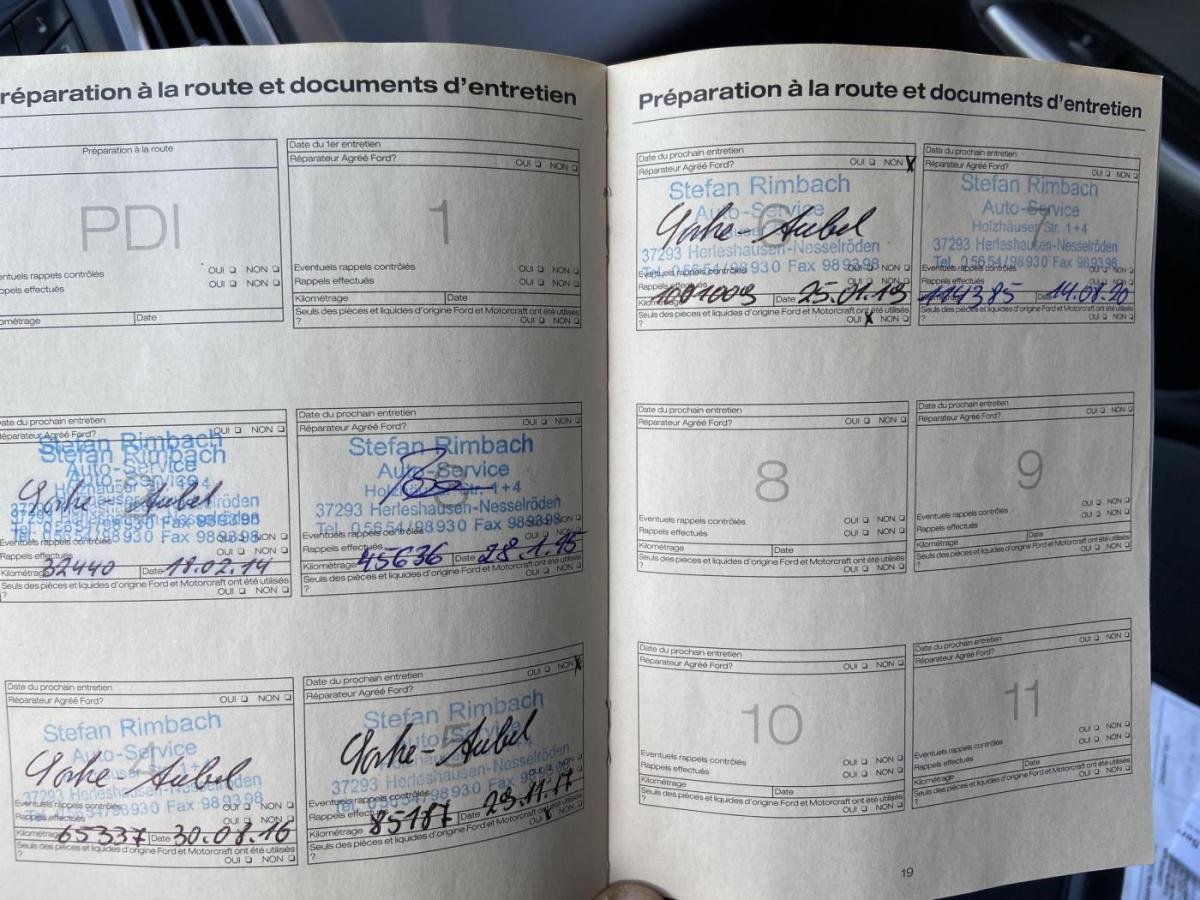 réparation à la route et documents d'entretien
Préparation à la route
PDI
entuels rappels contrôlés OUI NON
ppels effectués OUI NON
ométrage Date
Date du 1er entretien
Réparateur Agréé Ford? OUI NON
1
Eventuels rappels contrôlés OUI NON
Rappels effectués OUI NON
Kilométrage Date
Seuls des pièces et liquides d'origine Ford et Motorcraft ont été utilisés
? OUI NON
ate du prochain entretien
éparateur Agréé Ford? OUI NON
Stefan Rimbach
Stefan Rimbach
Auto-Service
37293 Herleshausen-Nesselröden
Tel. 0 56 54 / 98 9 30 Fax 98 93 98
Rappels effectués OUI NON
Kilométrage 32440 Date 18.02.14
Seuls des pièces et liquides d'origine Ford et Motorcraft ont été utilisés
? OUI NON
Date du prochain entretien
Réparateur Agréé Ford? OUI NON
Stefan Rimbach
Auto-Service
37293 Herleshausen-Nesselröden
Tel. 0 56 54 / 98 9 30 Fax 98 93 98
Eventuels rappels contrôlés
Rappels effectués
Kilométrage 45636 Date 28.1.15
Seuls des pièces et liquides d'origine Ford et Motorcraft ont été utilisés
? OUI NON
Date du prochain entretien
Réparateur Agréé Ford? OUI NON
Stefan Rimbach
Auto-Service
Tel. 0 56 54 / 98 9 30 Fax 98 93 98
Eventuels rappels contrôlés OUI NON
Rappels effectués OUI NON
Kilométrage 65337 Date 30.08.16
Seuls des pièces et liquides d'origine Ford et Motorcraft ont été utilisés
? OUI NON
Date du prochain entretien
Réparateur Agréé Ford? OUI NON X
Stefan Rimbach
Auto-Service
37293 Herleshausen-Nesselröden
Tel. 0 56 54 / 98 9 30 Fax 98 93 98
Eventuels rappels contrôlés
Rappels effectués
Kilométrage 85187 Date 29.11.17
Seuls des pièces et liquides d'origine Ford et Motorcraft ont été utilisés
? OUI X NON
Préparation à la route et documents d'entretien
Date du prochain entretien
Réparateur Agréé Ford? OUI NON X
6
Stefan Rimbach
Auto-Service
37293 Herleshausen-Nesselröden
Tel. 0 56 54 / 98 9 30 Fax 98 93 98
Eventuels rappels contrôlés OUI NON
Rappels effectués OUI NON
1001009 Date 25.01.19
Seuls des pièces et liquides d'origine Ford et Motorcraft ont été utilisés
? OUI X NON
Date du prochain entretien
Réparateur Agréé Ford? OUI NON
7
Stefan Rimbach
Auto-Service
Holzhäuser Str. 1+4
37293 Herleshausen-Nesselröden
Tel. 0 56 54 / 98 9 30 Fax 98 93 98
Eventuels rappels contrôlés OUI NON
Rappels effectués OUI NON
114385 Date 14.08.20
Seuls des pièces et liquides d'origine Ford et Motorcraft ont été utilisés
? OUI NON
Date du prochain entretien
Réparateur Agréé Ford? OUI NON
8
Eventuels rappels contrôlés OUI NON
Rappels effectués OUI NON
Kilométrage Date
Seuls des pièces et liquides d'origine Ford et Motorcraft ont été utilisés
? OUI NON
Date du prochain entretien
Réparateur Agréé Ford? OUI NON
9
Eventuels rappels contrôlés OUI NON
Rappels effectués OUI NON
Kilométrage Date
Seuls des pièces et liquides d'origine Ford et Motorcraft ont été utilisés
? OUI NON
Date du prochain entretien
Réparateur Agréé Ford? OUI NON
10
Eventuels rappels contrôlés OUI NON
Rappels effectués OUI NON
Kilométrage Date
Seuls des pièces et liquides d'origine Ford et Motorcraft ont été utilisés
? OUI NON
Date du prochain entretien
Réparateur Agréé Ford? OUI NON
11
Eventuels rappels contrôlés OUI NON
Rappels effectués OUI NON
Kilométrage Date
Seuls des pièces et liquides d'origine Ford et Motorcraft ont été utilisés
? OUI NON
19